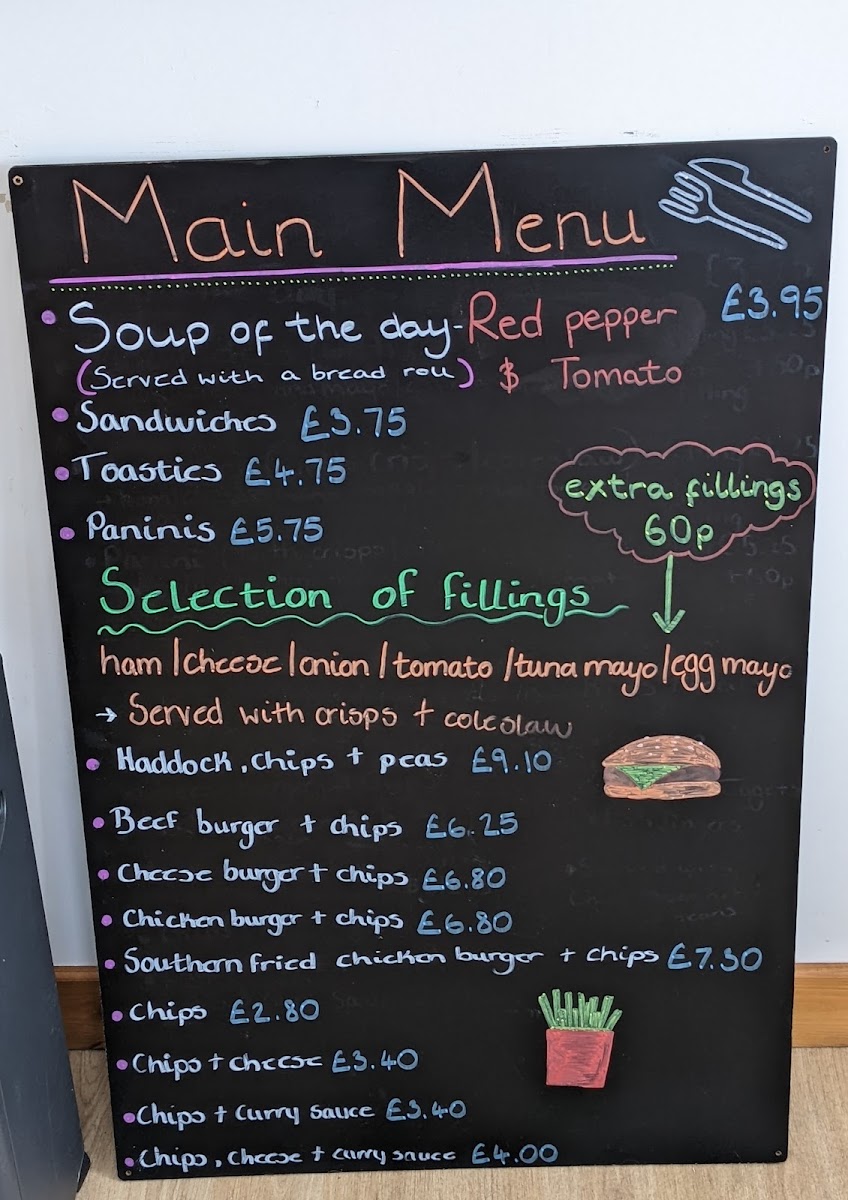 Main Menu
Soup of the day - Red pepper £3.95
(Served with a bread roll) & Tomato
Sandwiches £3.75
Toasties £4.75
Paninis £5.75
extra fillings
60p
Selection of fillings
ham / cheese / onion / tomato / tuna mayo / egg mayo
→ Served with crisps + coleslaw
Haddock, chips + peas £9.10
Beef burger + chips £6.25
Cheese burger + chips £6.80
Chicken burger + chips £6.80
Southern fried chicken burger + chips £7.30
Chips £2.80
Chips + cheese £3.40
Chips + curry sauce £3.40
Chips, cheese + curry sauce £4.00